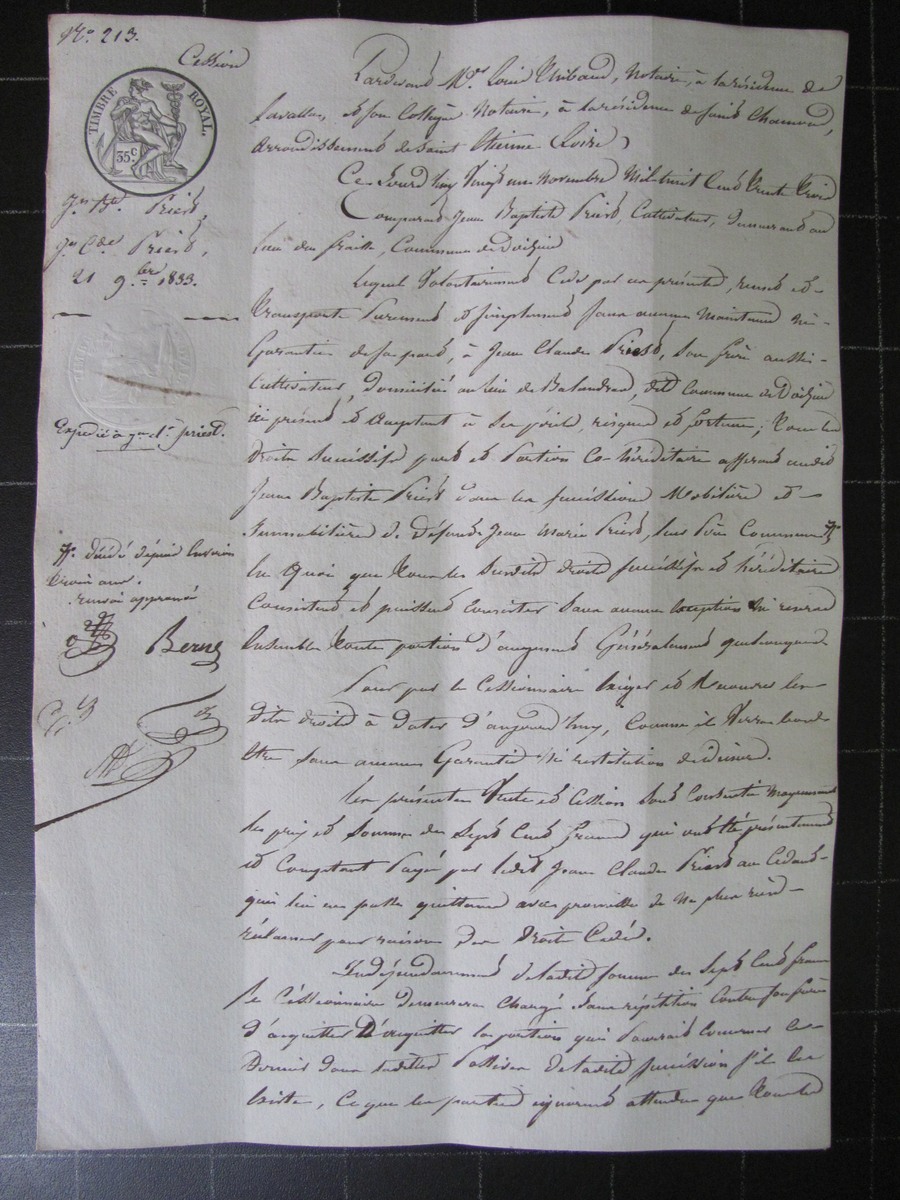 No. 213.
Cession
TIMBRE ROYAL.
35 c
Jn Bte Priest,
Jn Cde Priest,
21 9.bre 1833.
Expédié a Jn Cde priest.
décédé depuis environ
trois ans.
renvoi approuvé
Berne
Pardevant Me Louis Thibaud, Notaire, à la résidence de
Lavalla, et son Collègue Notaire, à la résidence de Saint Chamond,
Arrondissement de Saint Etienne (Loire)
Ce Jourd'huy Vingt un Novembre Mil huit Cent Trente Trois
Comparait Jean Baptiste Priest, Cultivateur, demeurant au
Lieu du Commune de Doizieu
Lequel Volontairement Cède par ces présentes, remet et
Transporte Purement et simplement sans aucune Maintenue Ni
Garantie de sa part, à Jean Claude Priest, Son frère aussi
Cultivateur, domicilié au lieu de dite Commune de Doizieu
ici présent et Acceptant à ses périls, risques et fortune; Tous les
Droits Successifs parts et Portion Co-héréditaire afférant audit
Jean Baptiste Priest dans les successions Mobilière et
Immobilière de Défunt Jean Marie Priest, leur Père Commun
En Quoi que Tous les Susdits droits successifs et héréditaires
Consistent et puissent Consister Sans aucune Exception Ni réserve
Ensemble Toutes portions d'augment Généralement quelconques
Pour par le Cessionnaire Exiger et Recouvrer les
dits droits à Dater d'aujourd'huy, Comme il Verra bon
Etre sans aucune Garantie Ni restitution de deniers.
Les présentes Vente et Cession Sont Consenties Moyennant
Les prix et Somme de Sept Cent francs qui ont été présentement
et Comptant Payés par ledit Jean Claude Priest au Cédant
qui lui en passe quittance avec promesse de Ne plus rien
réclamer pour raison des Droits Cédés.
Indépendamment de ladite Somme de Sept Cent francs
Le Cessionnaire demeurera chargé sans répétition Contre son frère
d'acquitter D'acquitter la portion qui Pourrait Concerner ce
Dernier dans les dettes Passives de ladite succession s'il en
Existe, Ce que les parties ignorent attendu que Tous les